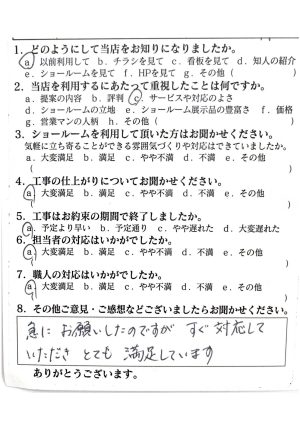 1. どのようにして当店をお知りになりましたか。
a. 以前利用して b. チラシを見て c. 看板を見て d. 知人の紹介
e. ショールームを見て f. HPを見て g. その他 (
2. 当店を利用するにあたって重視したことは何ですか。
a. 提案の内容 b. 評判 c. サービスや対応のよさ
d. ショールームの立地 e. ショールーム展示品の豊富さ f. 価格
g. 営業マンの人柄 h. その他 (
3. ショールームを利用して頂いた方はお聞かせください。
気軽に立ち寄ることができる雰囲気づくりや対応はできていましたか。
a. 大変満足 b. 満足 c. やや不満 d. 不満 e. その他
(
4. 工事の仕上がりについてお聞かせください。
a. 大変満足 b. 満足 c. やや不満 d. 不満 e. その他
(
5. 工事はお約束の期間で終了しましたか。
a. 予定より早い b. 予定通り c. やや遅れた d. 大変遅れた
6. 担当者の対応はいかがでしたか。
a. 大変満足 b. 満足 c. やや不満 d. 不満 e. その他
(
7. 職人の対応はいかがでしたか。
a. 大変満足 b. 満足 c. やや不満 d. 不満 e. その他
(
8. その他ご意見・ご感想などございましたらお聞かせください。
急に お願いしたのですが すぐ 対応して
いただき とても 満足しています
ありがとうございます。